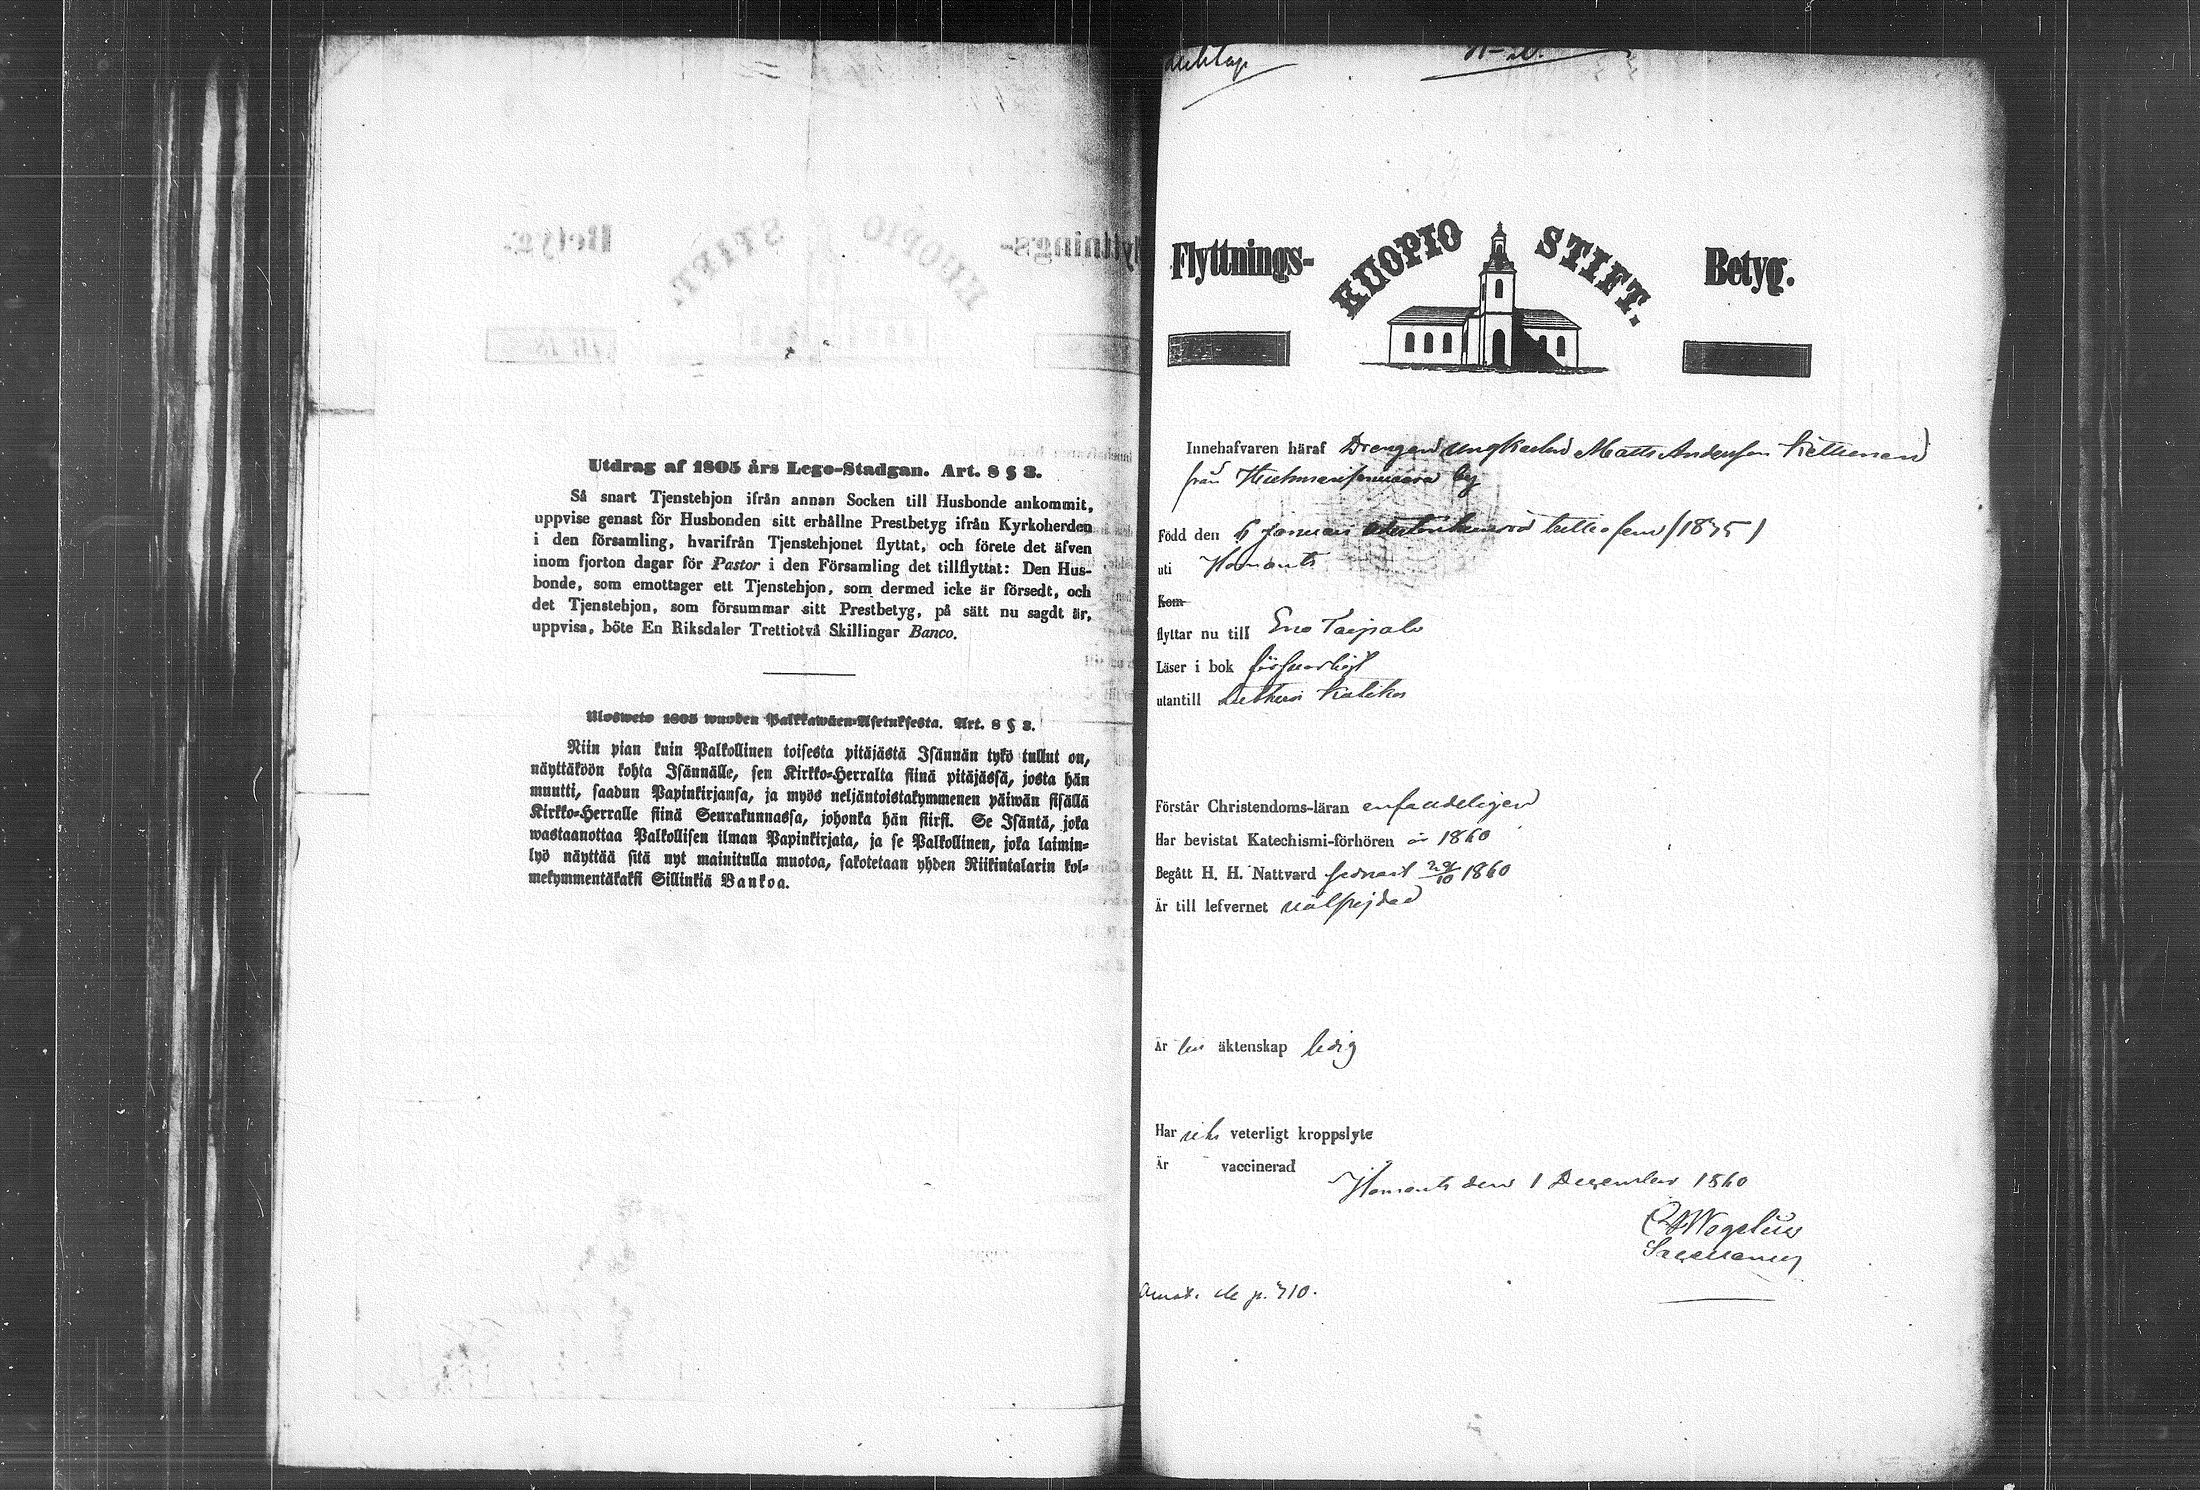 Utdrag af 1805 års Lego-Stadgan. Art. 8 § 3.
Så snart Tjenstehjon ifrån annan Socken till Husbonde ankommit,
uppvise genast för Husbonden sitt erhållne Prestbetyg ifrån Kyrkoherden
i den församling, hvarifrån Tjenstehjonet flyttat, och förete det äfven
inom fjorton dagar för Pastor i den Församling det tillflyttat: Den Hus-
bonde, som emottager ett Tjenstehjon, som dermed icke är försedt, och
det Tjenstehjon, som försummar sitt Prestbetyg, på sätt nu sagdt är,
uppvisa, böte En Riksdaler Trettiotvå Skillingar Banco.
Ulosweto 1805 wuoden Palkkawäen-Asetuksesta. Art. 8 § 3.
Niin pian kuin Palkollinen toisesta pitäjästä Isännän tykö tullut on,
näyttäköön kohta Isännälle, sen Kirkko-Herralta siinä pitäjässä, josta hän
muutti, saadun Papinkirjansa, ja myös neljäntoistakymmenen päiwän sisällä
Kirkko-Herralle siinä Seurakunnassa, johonka hän siirsi. Se Isäntä, joka
wastaanottaa Palkollisen ilman Papinkirjata, ja se Palkollinen, joka laimin-
lyö näyttää sitä nyt mainitulla muotoa, sakotetaan yhden Riikintalarin kol-
mekymmentäkaksi Sillinkiä Bankoa.
Flyttnings- KUOPIO STIFT. Betyg.
Innehafvaren häraf Drengen Ungkarlen Matts Andersson Kettunen
från by
Född den 6 Januari adertonhundra trettiofem (1835)
uti Ilomants
Kom
flyttar nu till Eno Taipale
Läser i bok försvarligt
utantill Lutheri Katikes
Förstår Christendoms-läran enfaldeligen
Har bevistat Katechismi-förhören år 1860
Begått H. H. Nattvard sednast 29/10 1860
Är till lefvernet välfrejdad
Är till äktenskap ledig
Har icke veterligt kroppslyte
Är vaccinerad
Ilomants den 1 December 1860
Wegelius
Sacellanus
p. 710.